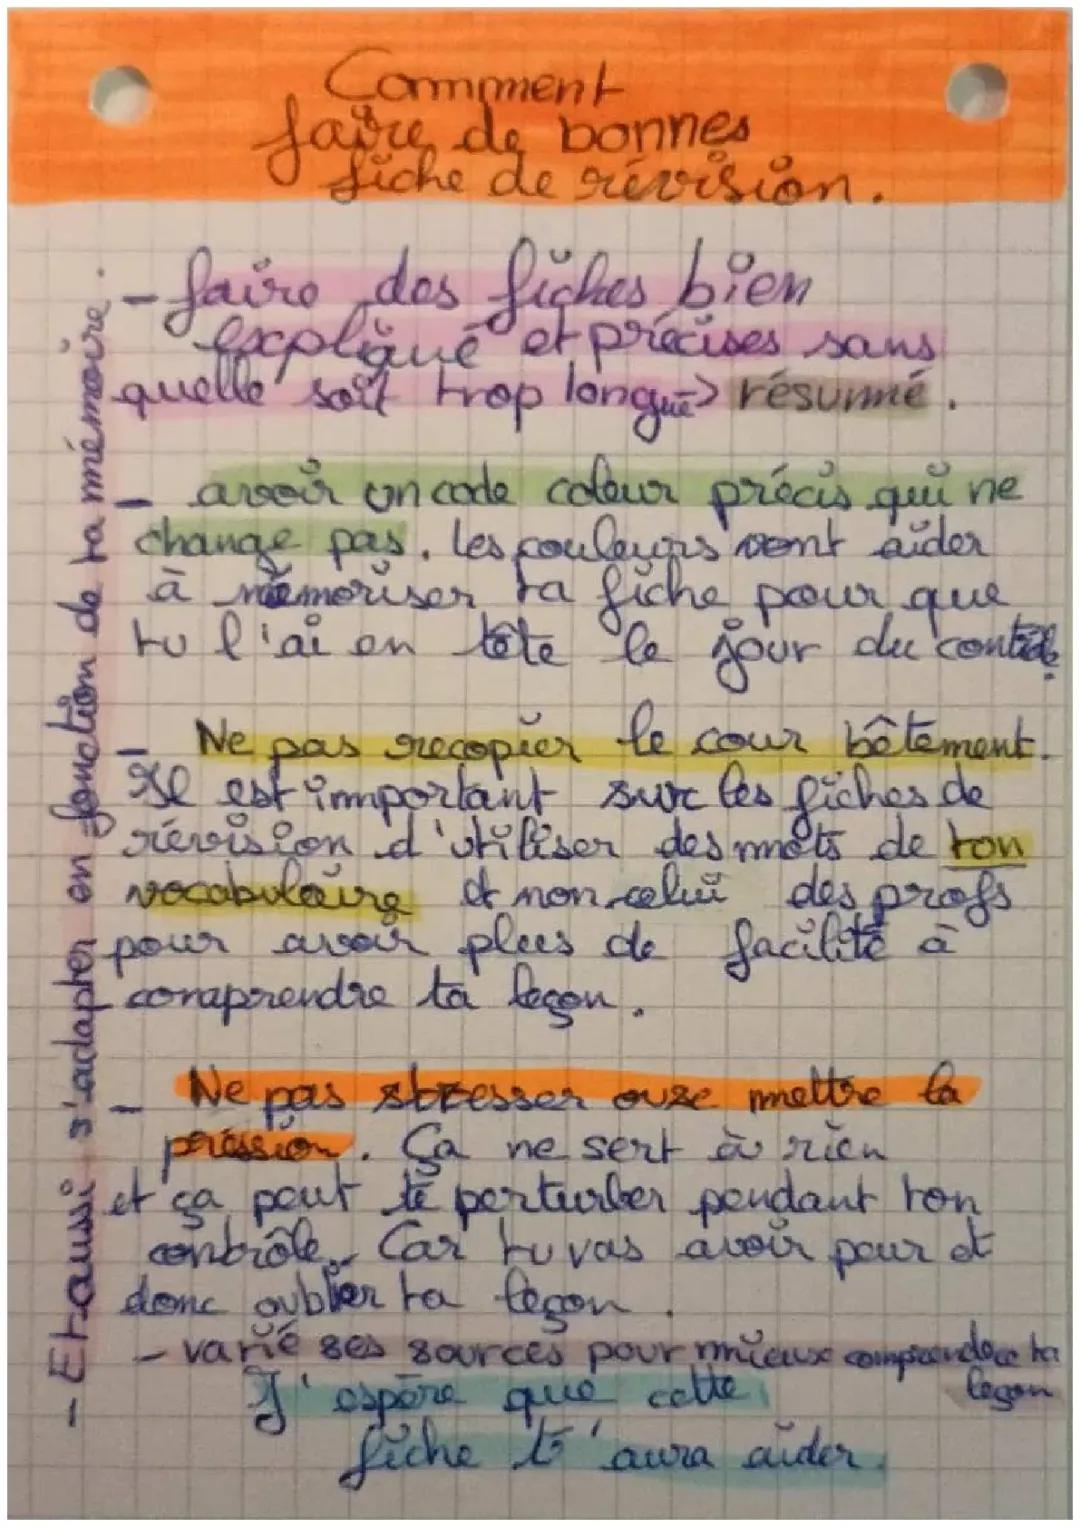 Comment
faire de bonnes
fiche de révision.
- faire des fiches bien
expliqué et précises sans
quelle soit trop longue -> résummé.
- avoir un code coleur précis qui ne
change pas. Les couleurs vont aider
à mémoriser ta fiche pour que
tu l'ai en tête le jour du contrôle.
- Ne pas recopier le cour bêtement.
Il est important sur les fiches de
révision d'utiliser des mots de ton
vocabulaire et non celui des profs
pour avoir plus de facilité à
comprendre ta leçon.
- Ne pas stresser ou se mettre la
préssion. Ça ne sert à rien
et ça peut te perturber pendant ton
contrôle. Car tu vas avoir peur et
donc oublier ta leçon.
- varié ses sources pour mieux comprendre ta
leçon
J'espère que cette
fiche t'aura aider.
- Et aussi s'adapter en fonction de ta mémoire.